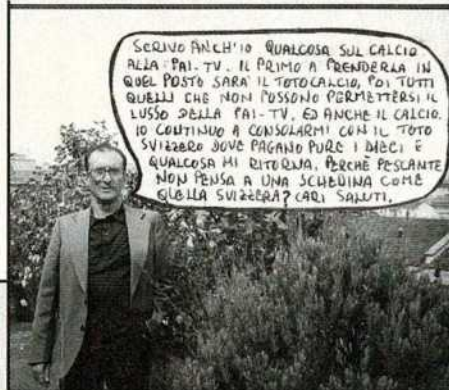 SCRIVO ANCH'IO QUALCOSA SUL CALCIO
ALLA PAI-TV. IL PRIMO A PRENDERLA IN
QUEL POSTO SARA' IL TOTOCALCIO, POI TUTTI
QUELLI CHE NON POSSONO PERMETTERSI IL
LUSSO DELLA PAI-TV. ED ANCHE IL CALCIO.
IO CONTINUO A CONSOLARMI CON IL TOTO
SVIZZERO DOVE PAGANO PURE I DIECI E
QUALCOSA MI RITORNA. PERCHÈ PESCANTE
NON PENSA A UNA SCHEDINA COME
QUELLA SVIZZERA? CARI SALUTI.